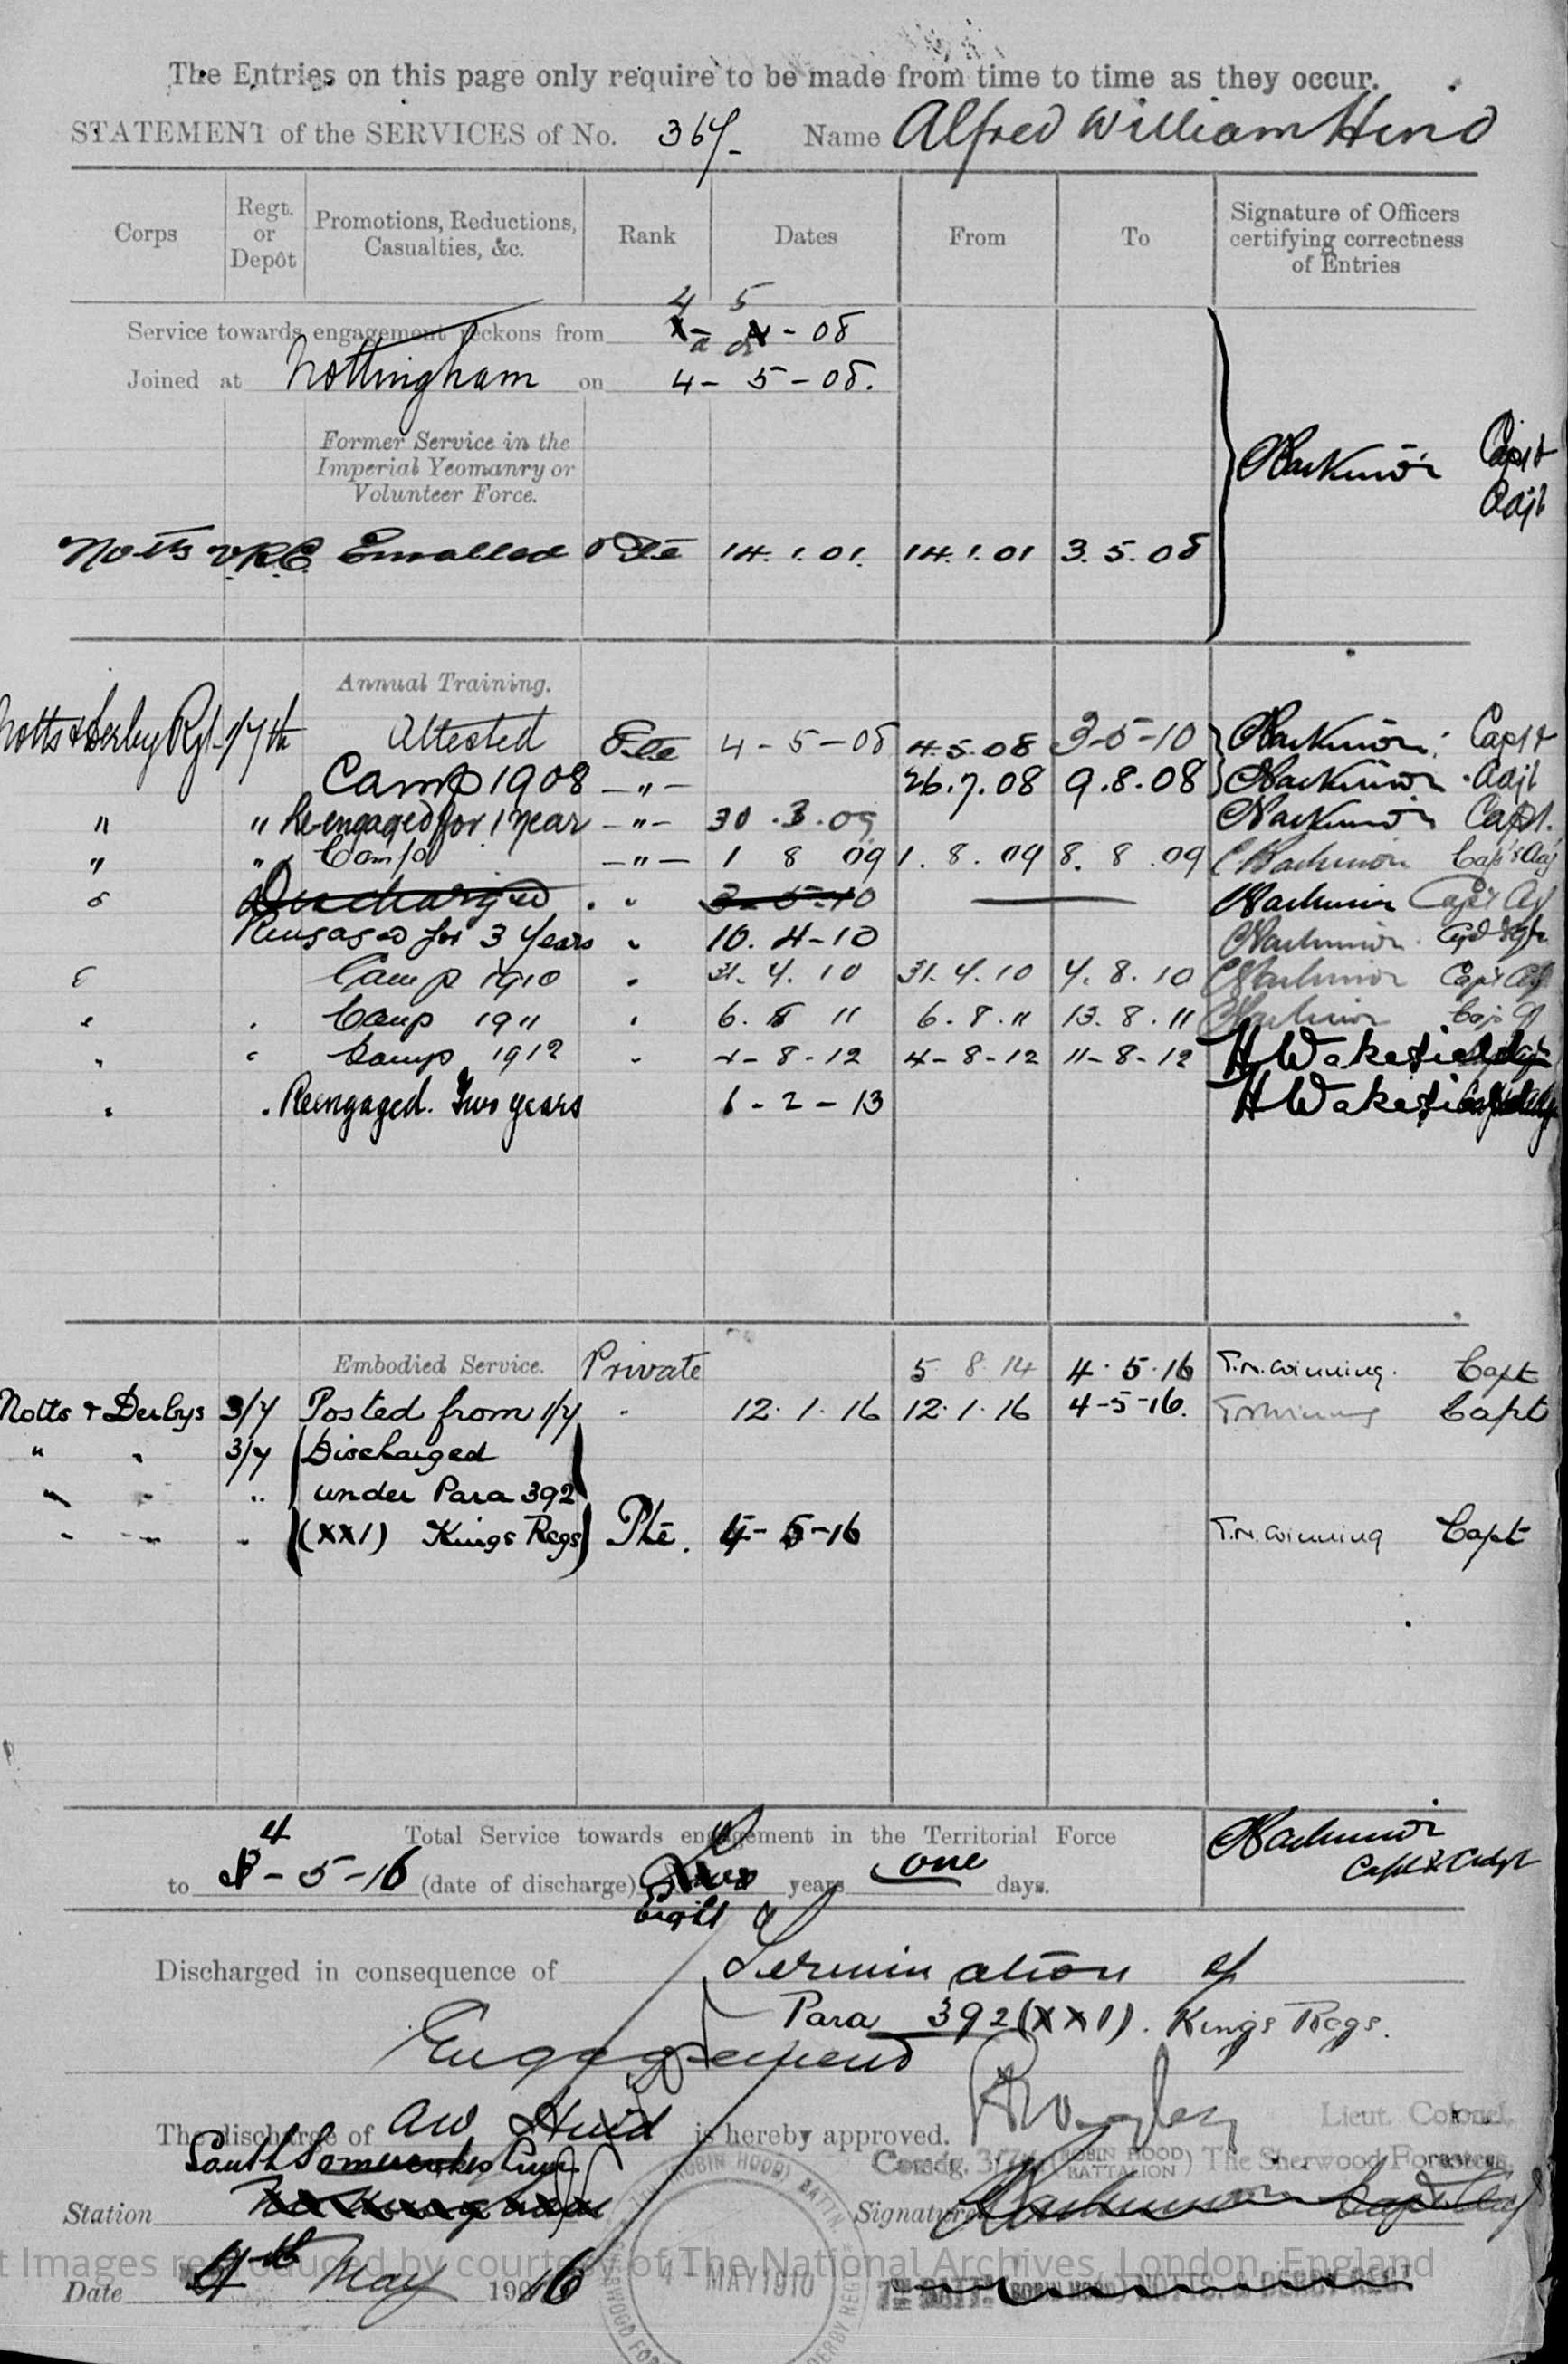 The Entries on this page only require to be made from time to time as they occur.
STATEMENT of the SERVICES of No. 367 Name Alfred William Hind
Corps Regt. or Depôt Promotions, Reductions, Casualties, &c. Rank Dates From To Signature of Officers certifying correctness of Entries
4 5
Service towards engagement reckons from - 08
Joined at Nottingham on 4 - 5 - 08.
Former Service in the
Imperial Yeomanry or
Volunteer Force.
Capt
Adjt
Notts V.R.C. Enrolled Pte 14.1.01. 14.1.01 3.5.08
Annual Training.
Notts & Derby Rgt 7th Attested Pte 4-5-08 4.5.08 3-5-10 Capt
Camp 1908 -"- 26.7.08 9.8.08 Adjt
" " Re-engaged for 1 year -"- 30.3.09 Capt.
" " Camp -"- 1 8 09 1.8.09 8.8.09
Discharged 3-5-10
Reengaged for 3 years 10.4-10
Camp 1910 31.7.10 31.7.10 7.8.10
Camp 1911 6.8 11 6.8.11 13.8.11
Camp 1912 4-8-12 4-8-12 11-8-12 H Wakefield
Reengaged. Two years 1-2-13 H Wakefield
Embodied Service. Private 5 8 14 4.5.16 T.N. Winning. Capt
Notts & Derbys 3/7 Posted from 1/7 12.1.16 12.1.16 4-5-16. Capt
" 3/7 Discharged
under Para 392
(XXI) Kings Regs Pte. 4-5-16 T.N. Winning Capt
Total Service towards engagement in the Territorial Force
4
to - 5-16 (date of discharge) years one days.
Capt & Adjt
Eight
Discharged in consequence of Termination of
Para 392 (XXI). Kings Regs.
Engagement
The discharge of AW Hind is hereby approved.
Lieut. Colonel,
Comdg. 3/7th (ROBIN HOOD BATTALION) The Sherwood Foresters.
South Somercotes
Station
Signature
Images reproduced by courtesy of The National Archives, London, England
Date 4th May 1916
4 MAY 1910
7TH BATTN. (ROBIN HOOD) NOTTS. & DERBY REGT